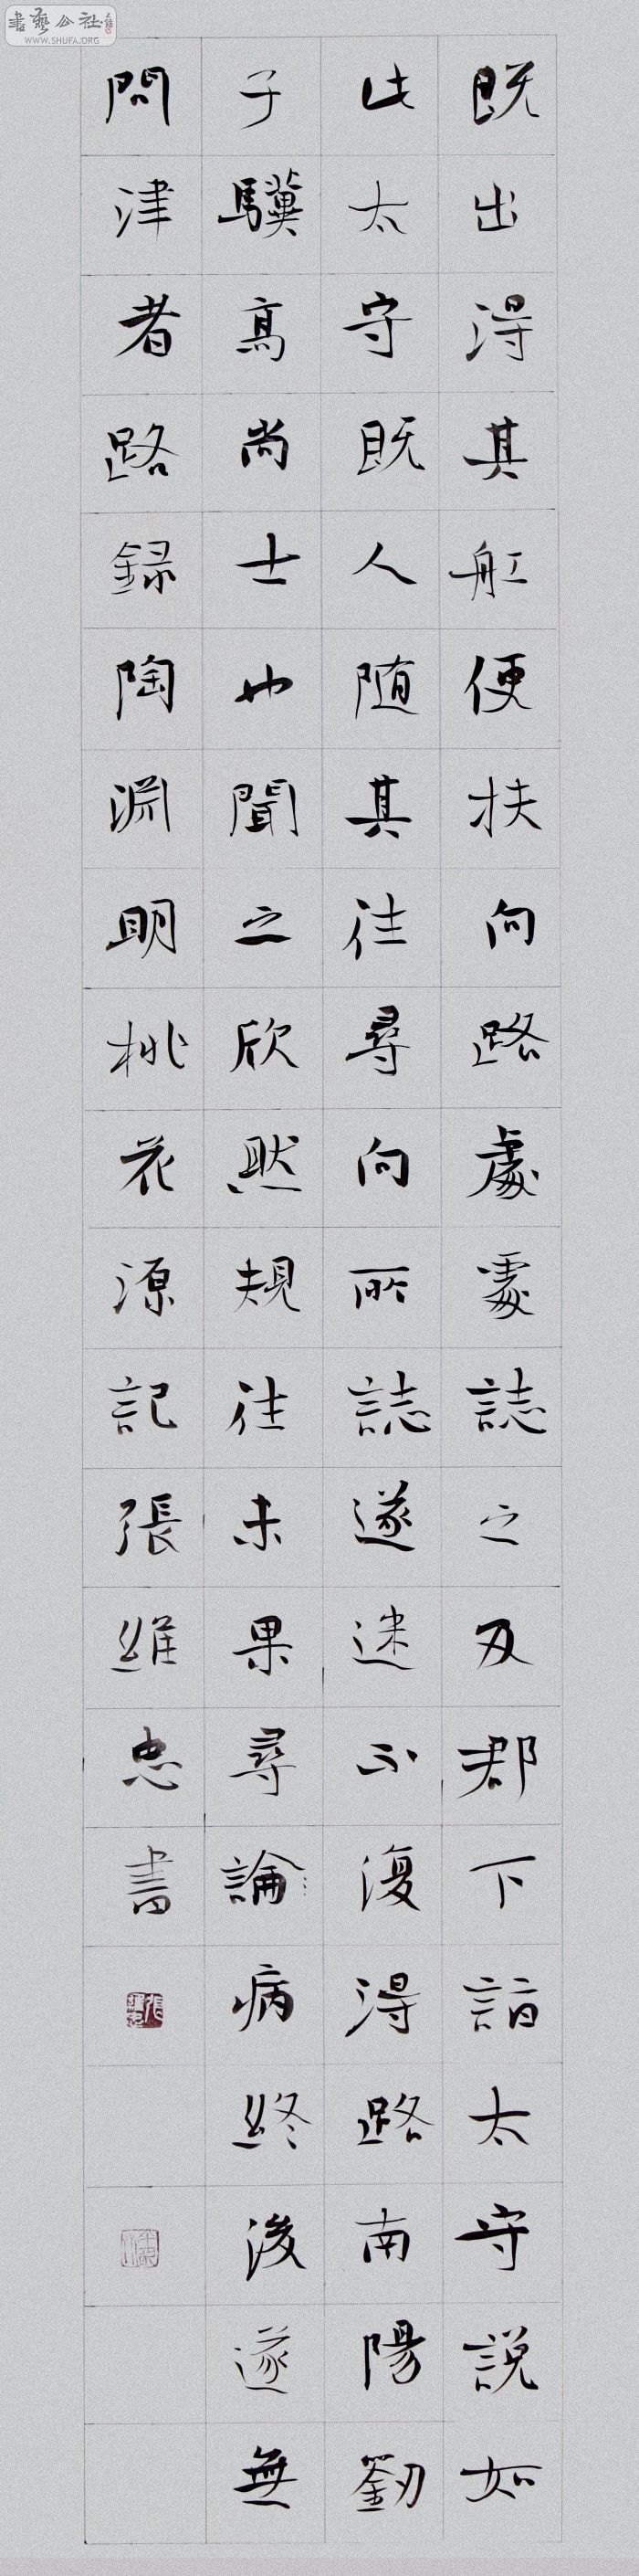 書藝公社
WWW.SHUFA.ORG
既出得其舡便扶向路處處誌之及郡下詣太守説如
此太守既人随其往尋向所誌遂迷不復得路南陽劉
子驥髙尚士也聞之欣然規往未果尋論病終後遂無
問津者路録陶淵明桃花源記張維忠書